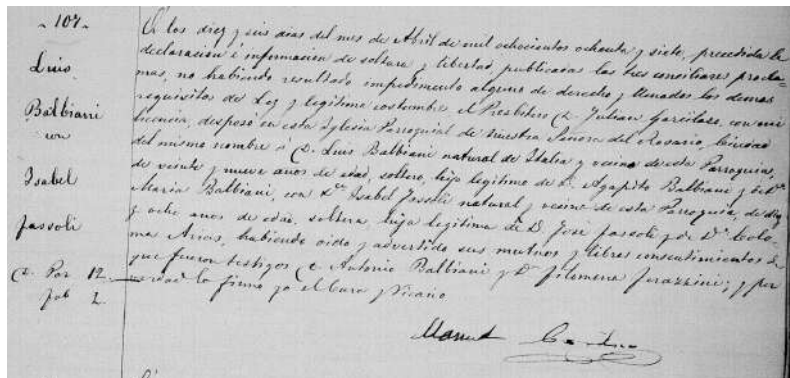 107.
Luis
Balbiani
con
Isabel
Jassoli
D. Por 12.
Fab 2
A los diez y seis dias del mes de Abril de mil ochocientos ochenta y siete, precedida la
declaracion é informacion de soltura y libertad, publicadas las tres conciliares procla=
mas, no habiendo resultado impedimento alguno de derecho y llenados los demas
requisitos de Ley y legitima costumbre el Presbitero D. Julian Garcilaso, con mi
licencia, desposó en esta Iglesia Parroquial de Nuestra Señora del Rosario, Ciudad
del mismo nombre á D. Luis Balbiani natural de Italia y vecino de esta Parroquia,
de veinte y nueve años de edad, soltero, hijo legitimo de D. Agapito Balbiani y de Dª
Maria Balbiani, con Dª Isabel Jassoli natural y vecina de esta Parroquia, de diez
y ocho años de edad, soltera, hija legitima de D. José Jassoli y de Dª
ma Arias, habiendo oido y advertido sus mutuos y libres consentimientos de
que fueron testigos D. Antonio Balbiani y Dª Filomena; y por
verdad lo firmo yo el Cura y Vicario
Manuel